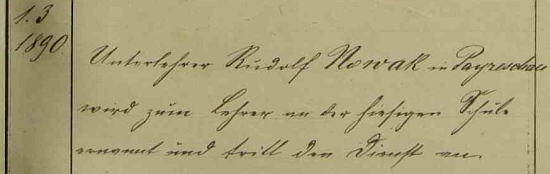 1. 3
1890. Unterlehrer Rudolf Nowak in Payreschau
wird zum Lehrer an der hiesigen Schule
ernannt und tritt den Dienst an.